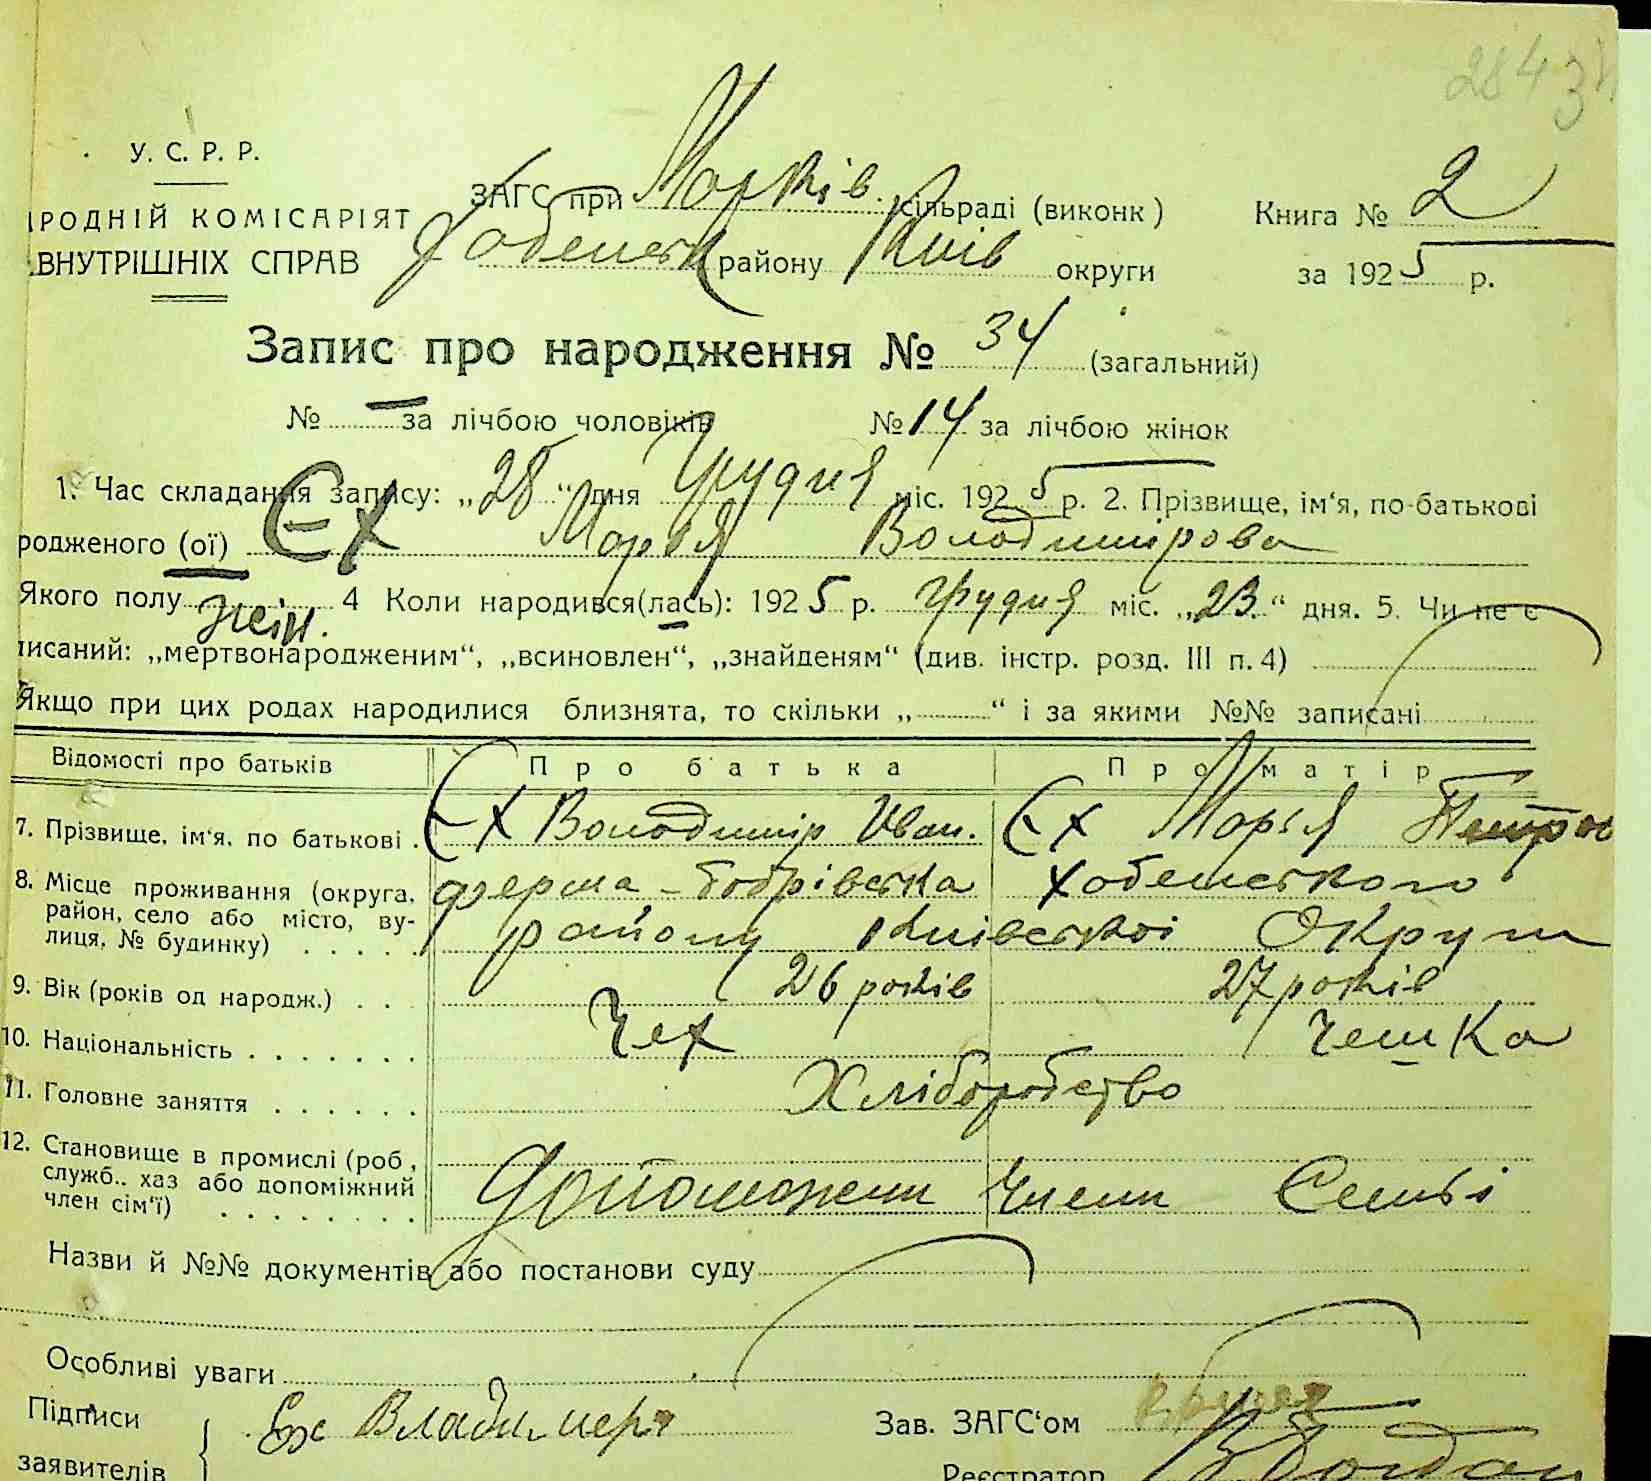 2843
У. С. Р. Р.
ЗАГС при Марків. сільраді (виконк) Книга № 2
РОДНІЙ КОМІСАРІЯТ
Хабенськ району Київ округи за 1925 р.
ВНУТРІШНІХ СПРАВ
Запис про народження № 34 (загальний)
№ — за лічбою чоловіків № 14 за лічбою жінок
1. Час складання запису: „28“ дня Грудня міс. 1925 р. 2. Прізвище, ім‘я, по-батькові
родженого (ої) Єх Марья Володимирова
Якого полу жін. 4 Коли народився(лась): 1925 р. грудня міс. „23.“ дня. 5. Чи не є
писаний: „мертвонародженим“, „всиновлен“, „знайденям“ (див. інстр. розд. III п. 4)
Якщо при цих родах народилися близнята, то скільки „ “ і за якими №№ записані
Відомості про батьків Про батька Про матір
7. Прізвище, ім‘я, по батькові . Єх Володимир Иван. Єх Марья Петров
8. Місце проживання (округа, ферма - Бобрівська Хабенського
район, село або місто, ву- району Київської Округи
лиця, № будинку) . . . . .
9. Вік (років од народж.) . . . 26 років 27 років
10. Національність . . . . . . . Чех Чешка
11. Головне заняття . . . . . . Хліборобство
12. Становище в промислі (роб.,
служб.. хаз або допоміжний Допоможени Члени Семьі
член сім‘ї) . . . . . . . .
Назви й №№ документів або постанови суду
Особливі уваги
Підписи Ех Владимер Зав. ЗАГС‘ом
заявителів Реєстратор